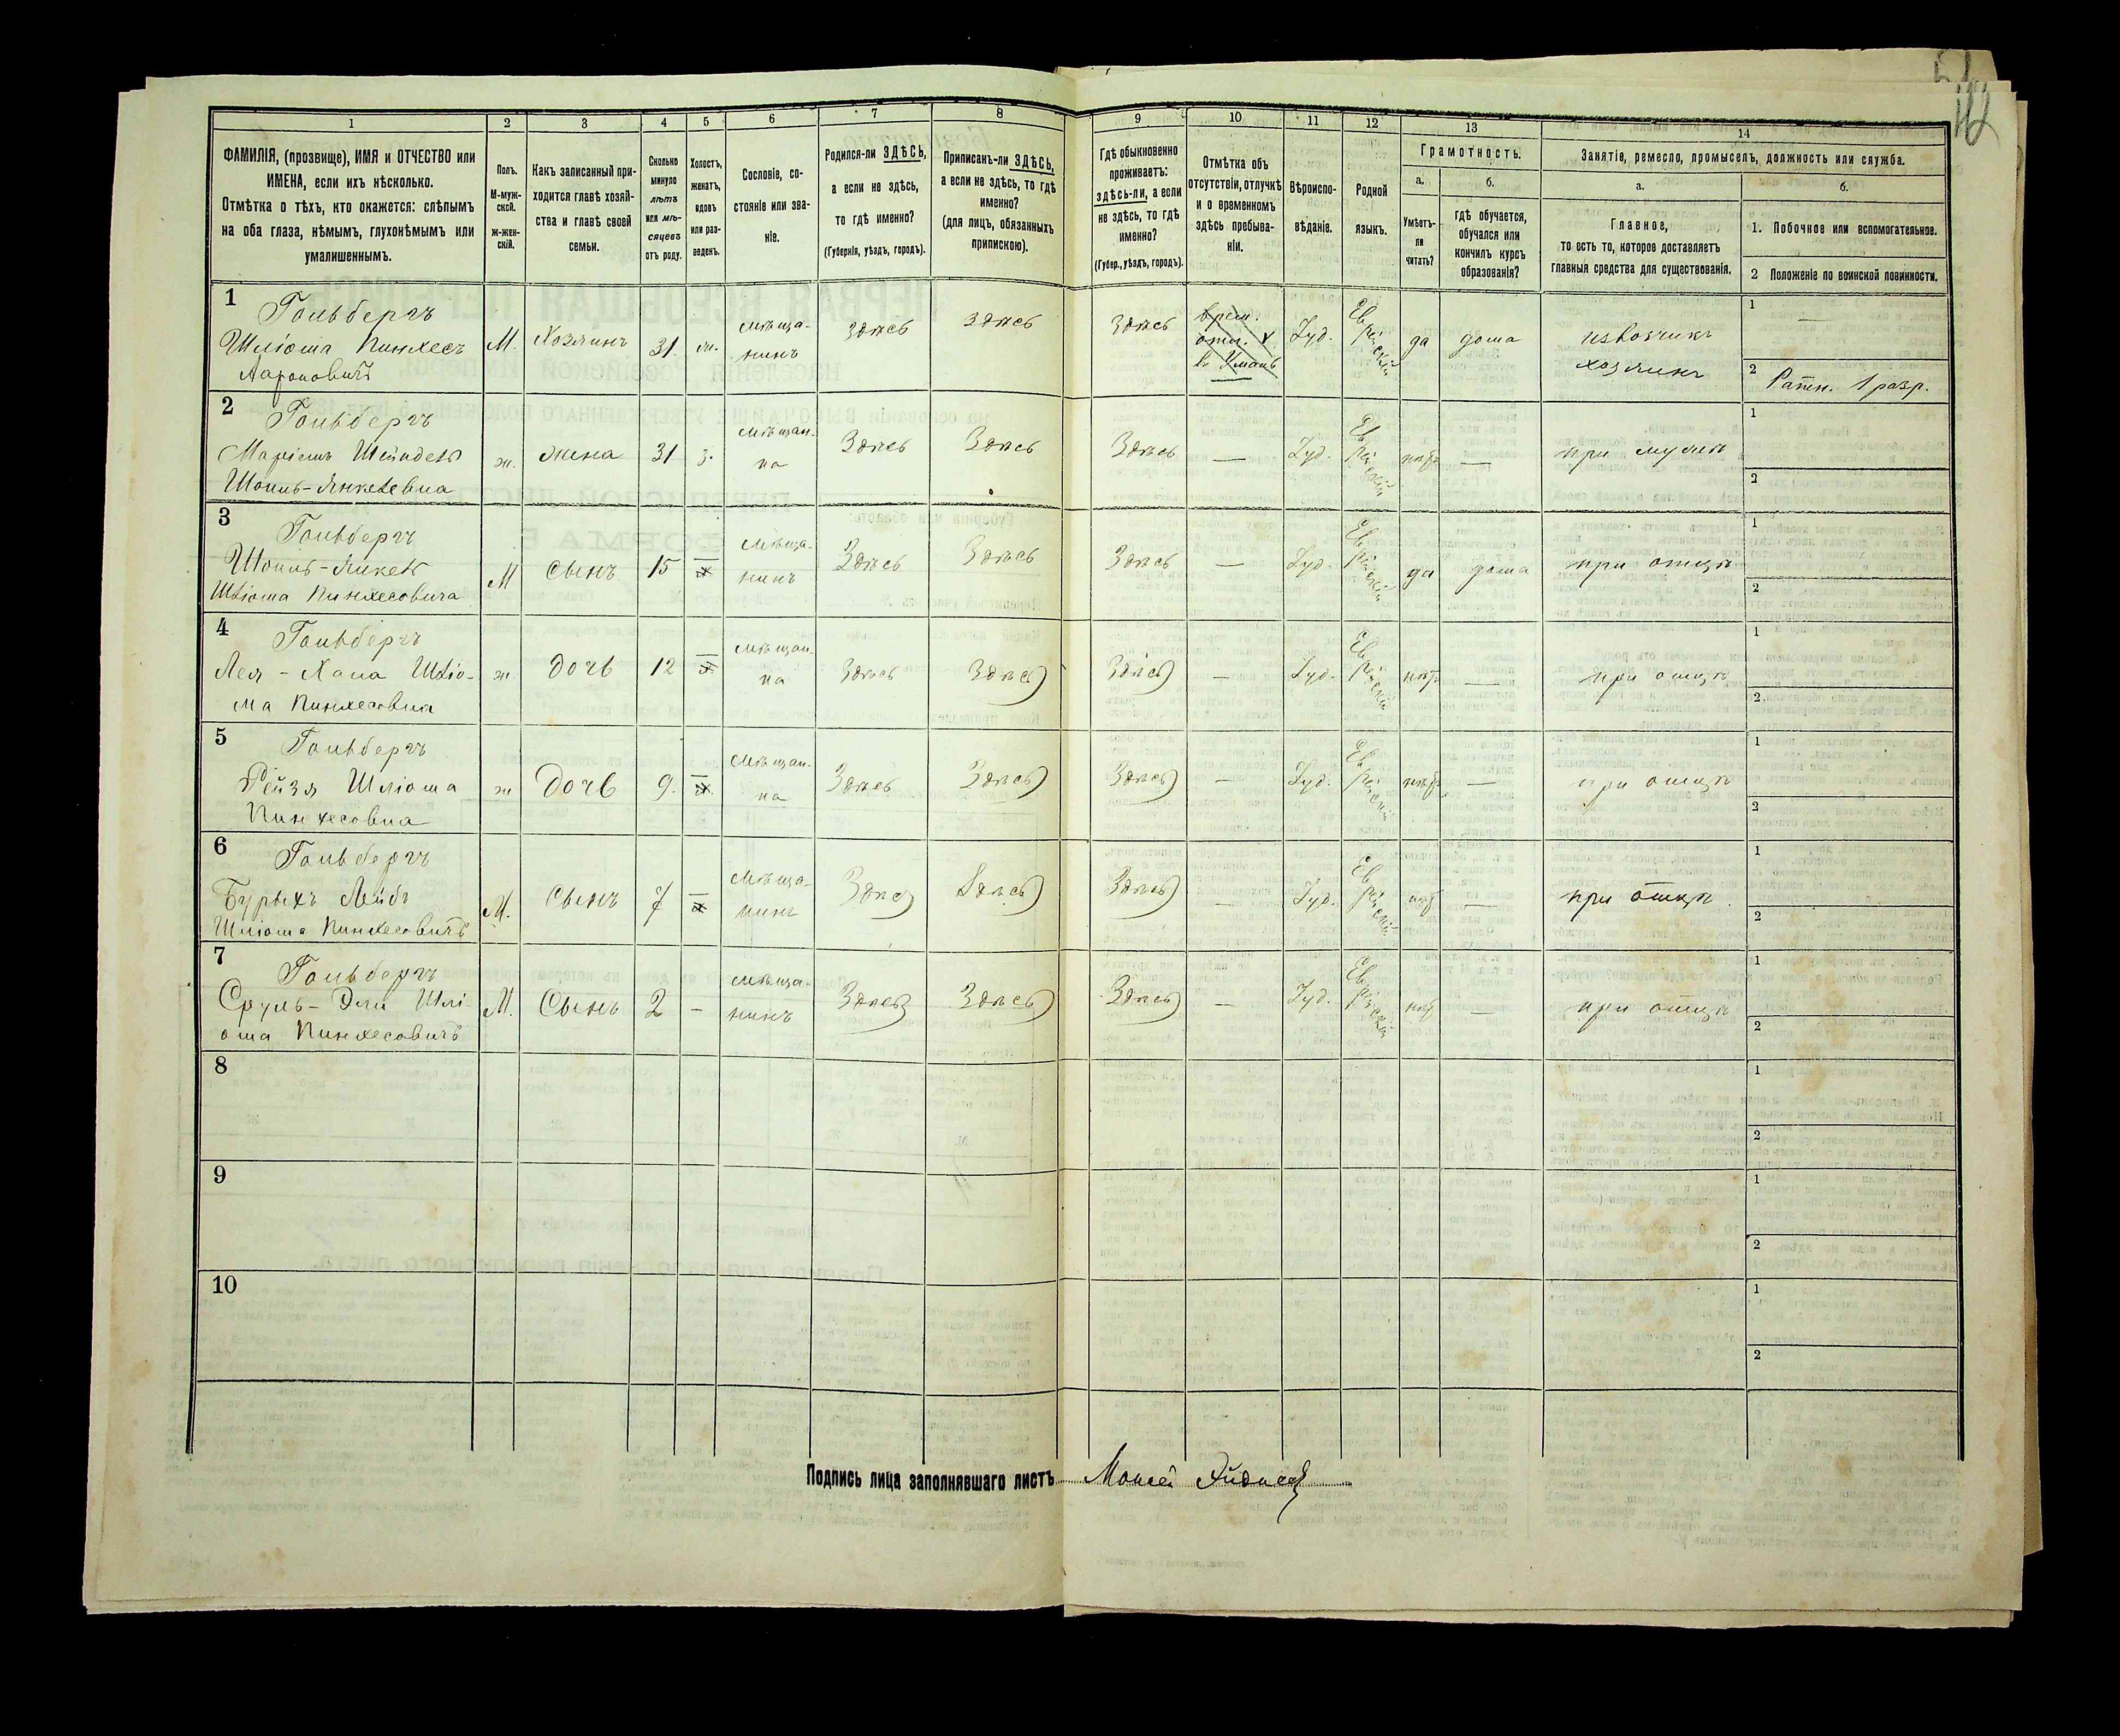 1 2 3 4 5 6 7 8 9 10 11 12 13 14
ФАМИЛІЯ, (прозвище), ИМЯ и ОТЧЕСТВО или
ИМЕНА, если ихъ нѣсколько.
Отмѣтка о тѣхъ, кто окажется: слѣпымъ
на оба глаза, нѣмымъ, глухонѣмымъ или
умалишеннымъ.
Полъ.
М-муж-
ской.
ж-жен-
скій.
Какъ записанный при-
ходится главѣ хозяй-
ства и главѣ своей
семьи.
Сколько
минуло
лѣтъ
или мѣ-
сяцевъ
отъ роду.
Холостъ,
женатъ,
вдовъ
или раз-
веденъ.
Сословіе, со-
стояніе или зва-
ніе.
Родился-ли ЗДѢСЬ,
а если не здѣсь,
то гдѣ именно?
(Губернія, уѣздъ, городъ).
Приписанъ-ли ЗДѢСЬ,
а если не здѣсь, то гдѣ
именно?
(для лицъ, обязанныхъ
припискою).
Гдѣ обыкновенно
проживаетъ:
здѣсь-ли, а если
не здѣсь, то гдѣ
именно?
(Губер., уѣздъ, городъ).
Отмѣтка объ
отсутствіи, отлучкѣ
и о временномъ
здѣсь пребыва-
ніи.
Вѣроиспо-
вѣданіе.
Родной
языкъ.
Грамотность.
а.
Умѣетъ-
ли
читать?
б.
гдѣ обучается,
обучался или
кончилъ курсъ
образованія?
Занятіе, ремесло, промыселъ, должность или служба.
а.
Главное,
то есть то, которое доставляетъ
главныя средства для существованія.
б.
1. Побочное или вспомогательное.
2 Положеніе по воинской повинности.
1 Гольбергъ
Шліома Пинхесъ
Аароновичъ
М. Хозяинъ 31. ж.
мѣща-
нинъ
здѣсь здѣсь здѣсь
врем.
отл.
в Умань
Іуд.
Ев
рейскій
да дома
извозчикъ
хозяинъ
1 —
2 Ратн. 1 разр.
2 Гольбергъ
Маріемъ Шейндель
Шоиль-Янкелевна
ж. жена 31 з.
мѣщан-
ка
Здѣсь Здѣсь Здѣсь — Іуд.
Ев
рейскій
нѣтъ — при мужѣ
1
2
3 Гольбергъ
Шоиль-Янкель
Шліома Пинхесовичъ
М сынъ 15 —
мѣща-
нинъ
Здѣсь Здѣсь Здѣсь — Іуд.
Ев
рейскій
да дома при отцѣ
1
2
4 Гольбергъ
Лея - Хана Шліо-
ма Пинхесовна
ж дочь 12 —
мѣщан-
ка
Здѣсь Здѣсь Здѣсь — Іуд.
Ев
рейскій
нѣтъ — при отцѣ
1
2
5 Гольбергъ
Рейзя Шліома
Пинхесовна
ж Дочь 9. —
мѣщан-
ка
Здѣсь Здѣсь Здѣсь — Іуд.
Ев
рейскій
нѣтъ — при отцѣ
1
2
6 Гольбергъ
Бурыхъ Лейбъ
Шліома Пинхесовичъ
М. Сынъ 7 —
мѣща-
нинъ
Здѣсь Здѣсь Здѣсь — Іуд.
Ев
рейскій
нѣтъ — при отцѣ
1
2
7 Гольбергъ
Сруль-Эли Шлі-
ома Пинхесовичъ
М. Сынъ 2 -
мѣща-
нинъ
Здѣсь Здѣсь Здѣсь — Іуд.
Ев
рейскій
нѣтъ — при отцѣ
1
2
8
1
2
9
1
2
10
1
2
Подпись лица заполнявшаго листъ Моисей